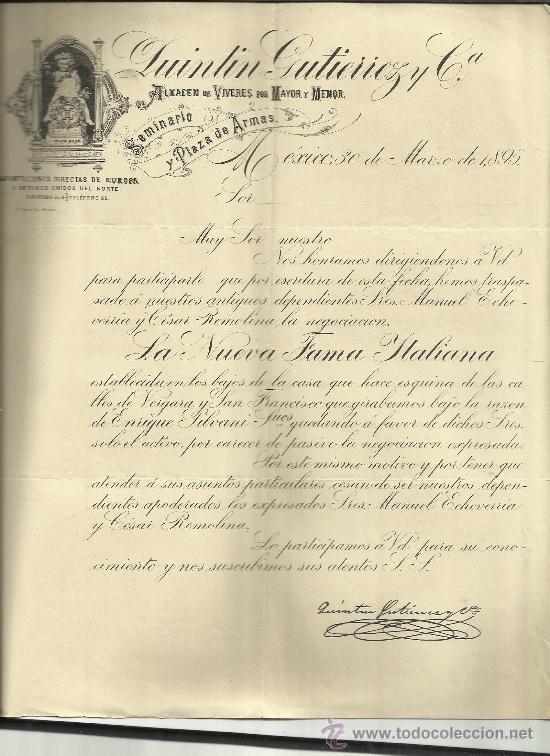 Quintin Gutierrez y Cª
ALMACEN DE VIVERES POR MAYOR Y MENOR.
Seminario
y Plaza de Armas.
México, 30 de Marzo de 1895
IMPORTACIONES DIRECTAS DE EUROPA
Y ESTADOS UNIDOS DEL NORTE.
TELÉFONO
Sor
Muy Sor nuestro
Nos honramos dirigiendonos á Vd
para participarle que por escritura de esta fecha, hemos traspa-
sado á nuestros antiguos dependientes Sres. Manuel Eche-
verria y César Remolina, la negociacion,
La Nueva Fama Italiana
establecida en los bajos de la casa que hace esquina de las ca-
lles de Vergara y San Francisco que girabamos bajo la razon
de Enrique Silvani Sucs quedando á favor de dichos Sres.
solo el activo, por carecer de pasivo la negociacion expresada.
Por este mismo motivo y por tener que
atender á sus asuntos particulares cesan de ser nuestros depen-
dientes apoderados los expresados Sres. Manuel Echeverria
y César Remolina.
Lo participamos á Vd para su cono-
cimiento y nos suscribimos sus atentos S. S.
Quintin Gutierrez y Cia
www.todocoleccion.net